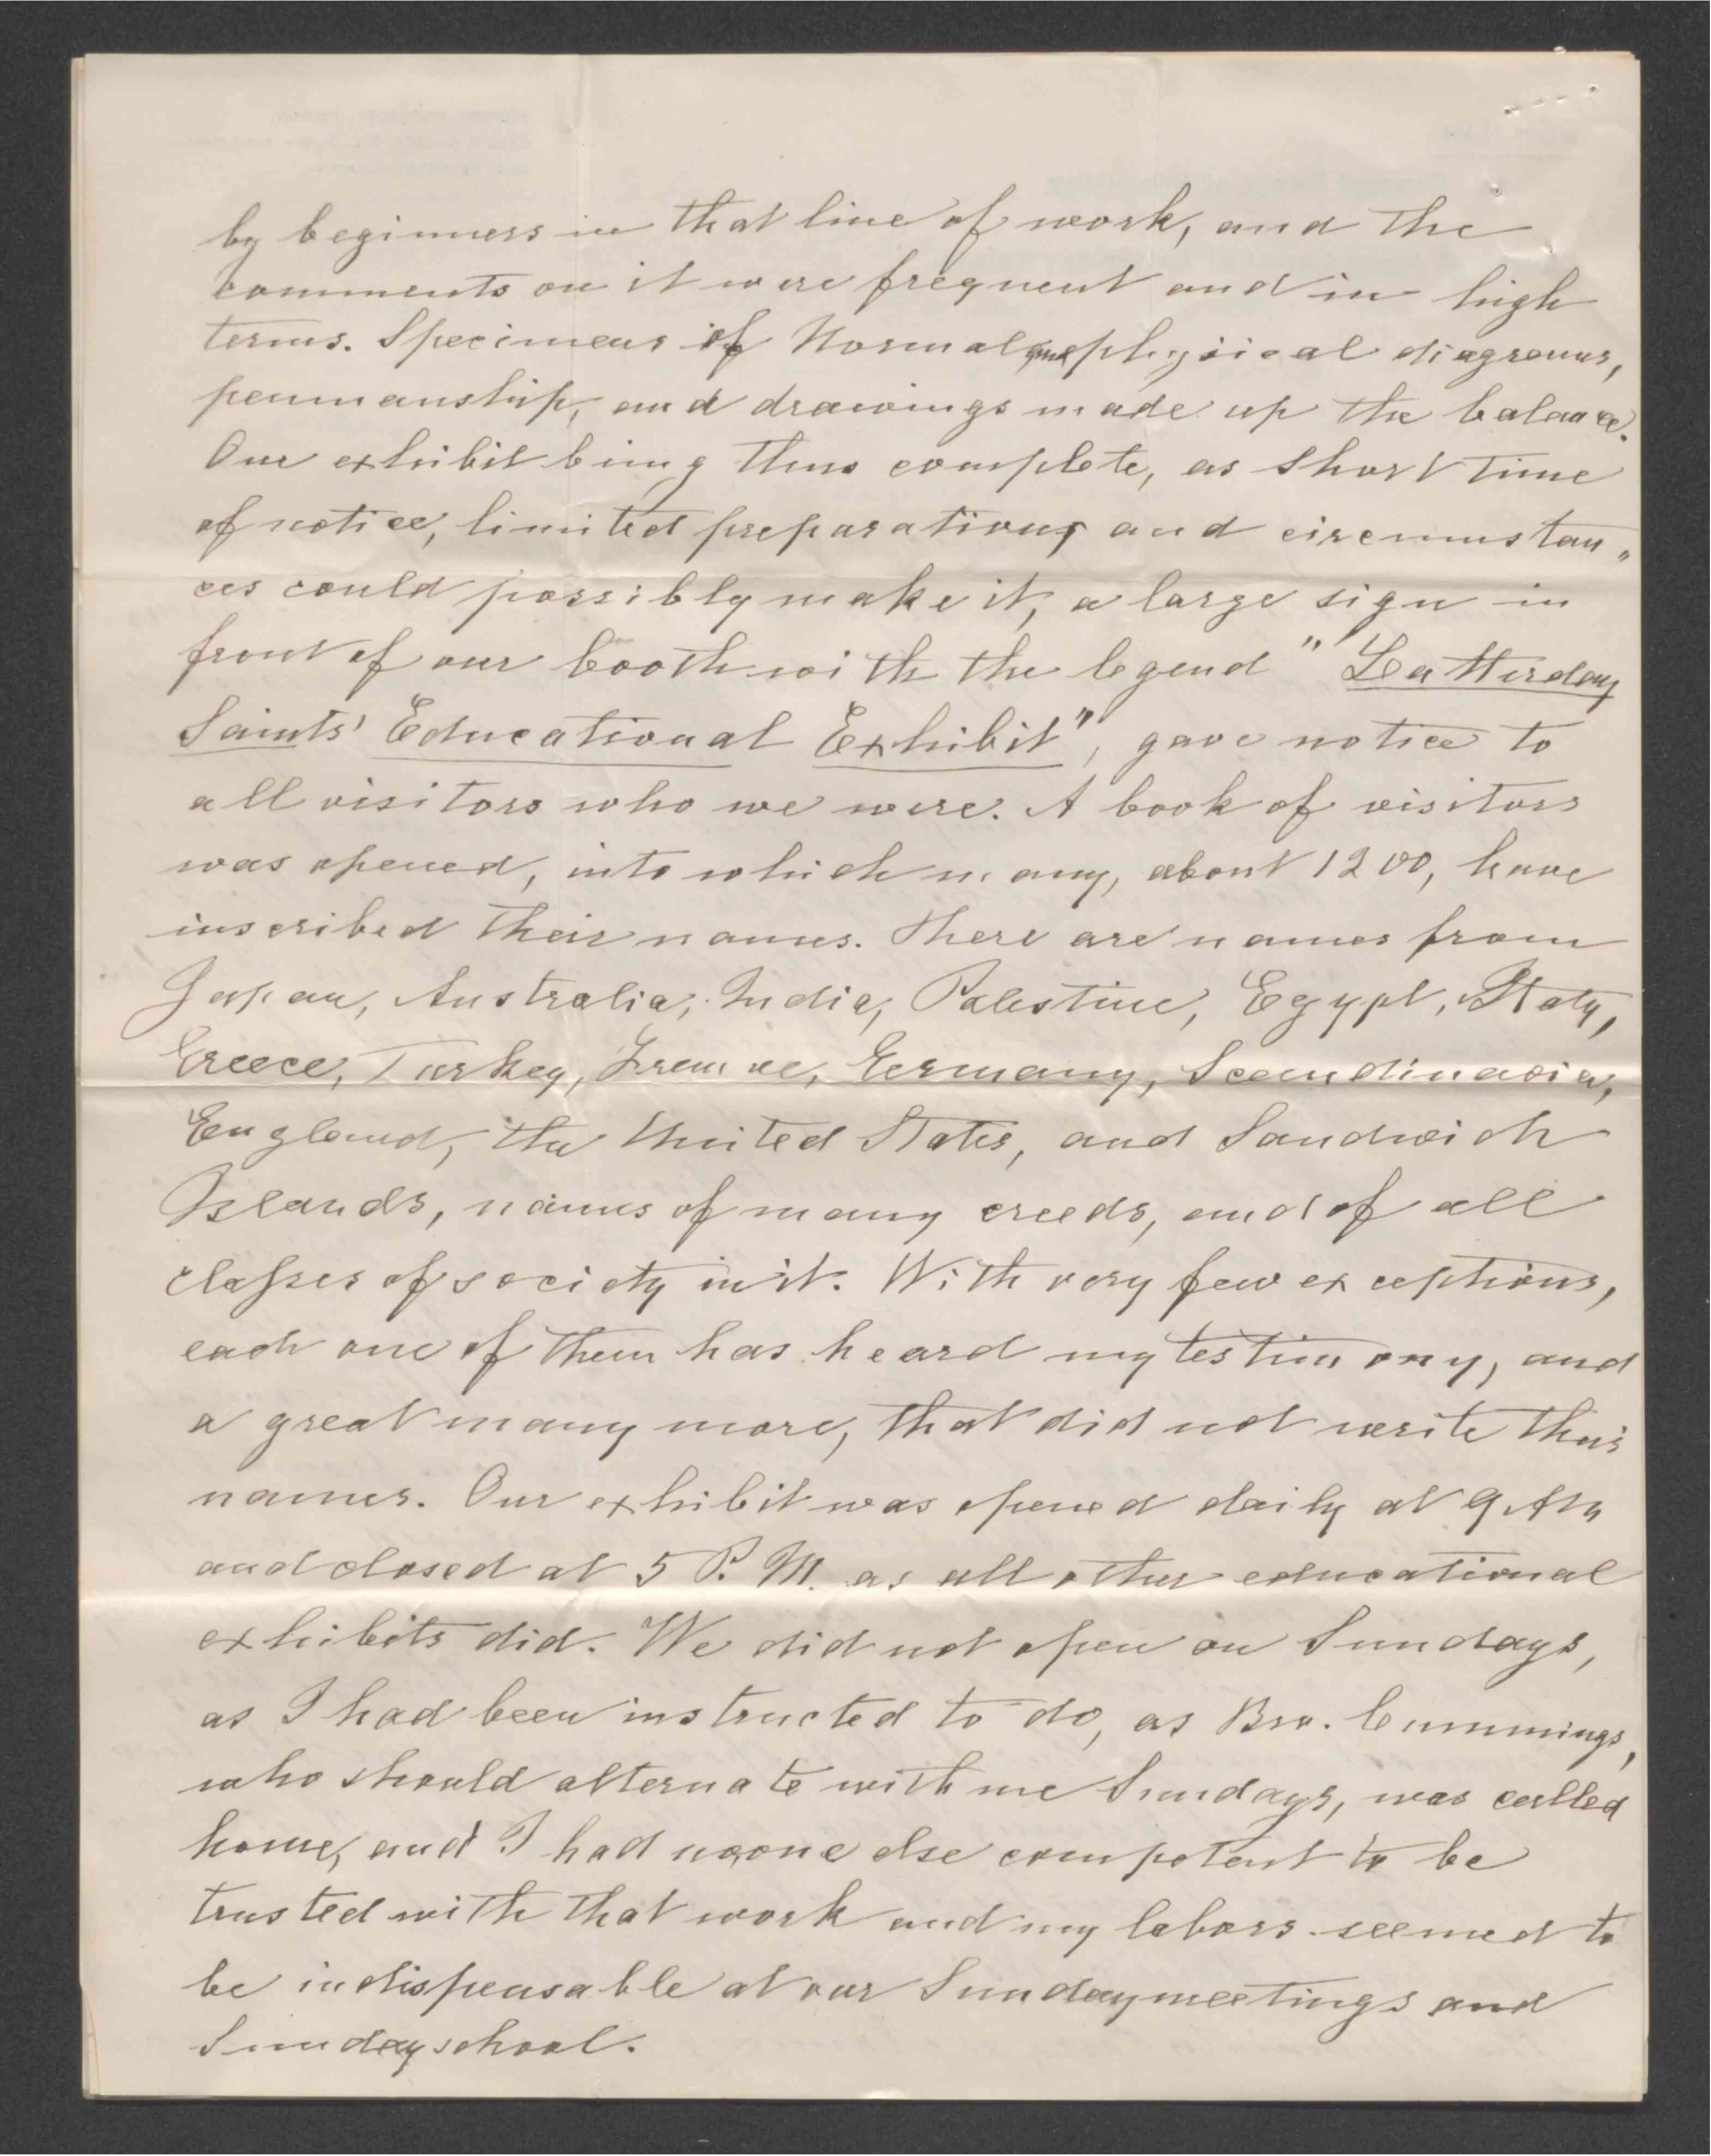 by beginners in that line of work, and the
comments on it were frequent and in high
terms. Specimens of Normal and physical diagrams,
penmanship, and drawings made up the balance.
Our exhibit being thus complete, as short time
of notice, limited preparations and circumstan„
ces could possibly make it, a large sign in
front of our booth with the legend "Latterday
Saints' Educational Exhibit", gave notice to
all visitors who we were. A book of visitors
was opened, into which many, about 1200, have
inscribed their names. There are names from
Japan, Australia, India, Palestine, Egypt, Italy,
Greece, Turkey, France, Germany, Scandinavia,
England, the United States, and Sandwich
Islands, names of many creeds, and of all
classes of society in it. With very few exceptions,
each one of them has heard my testimony, and
a great many more, that did not write their
names. Our exhibit was opened daily at 9 AM
and closed at 5 P. M. as all other educational
exhibits did. We did not open on Sundays,
as I had been instructed to do, as Bro. Cummings,
who should alternate with me Sundays, was called
home, and I had no one else competent to be
trusted with that work and my labors seemed to
be indispensable at our Sundaymeetings and
Sundayschool.